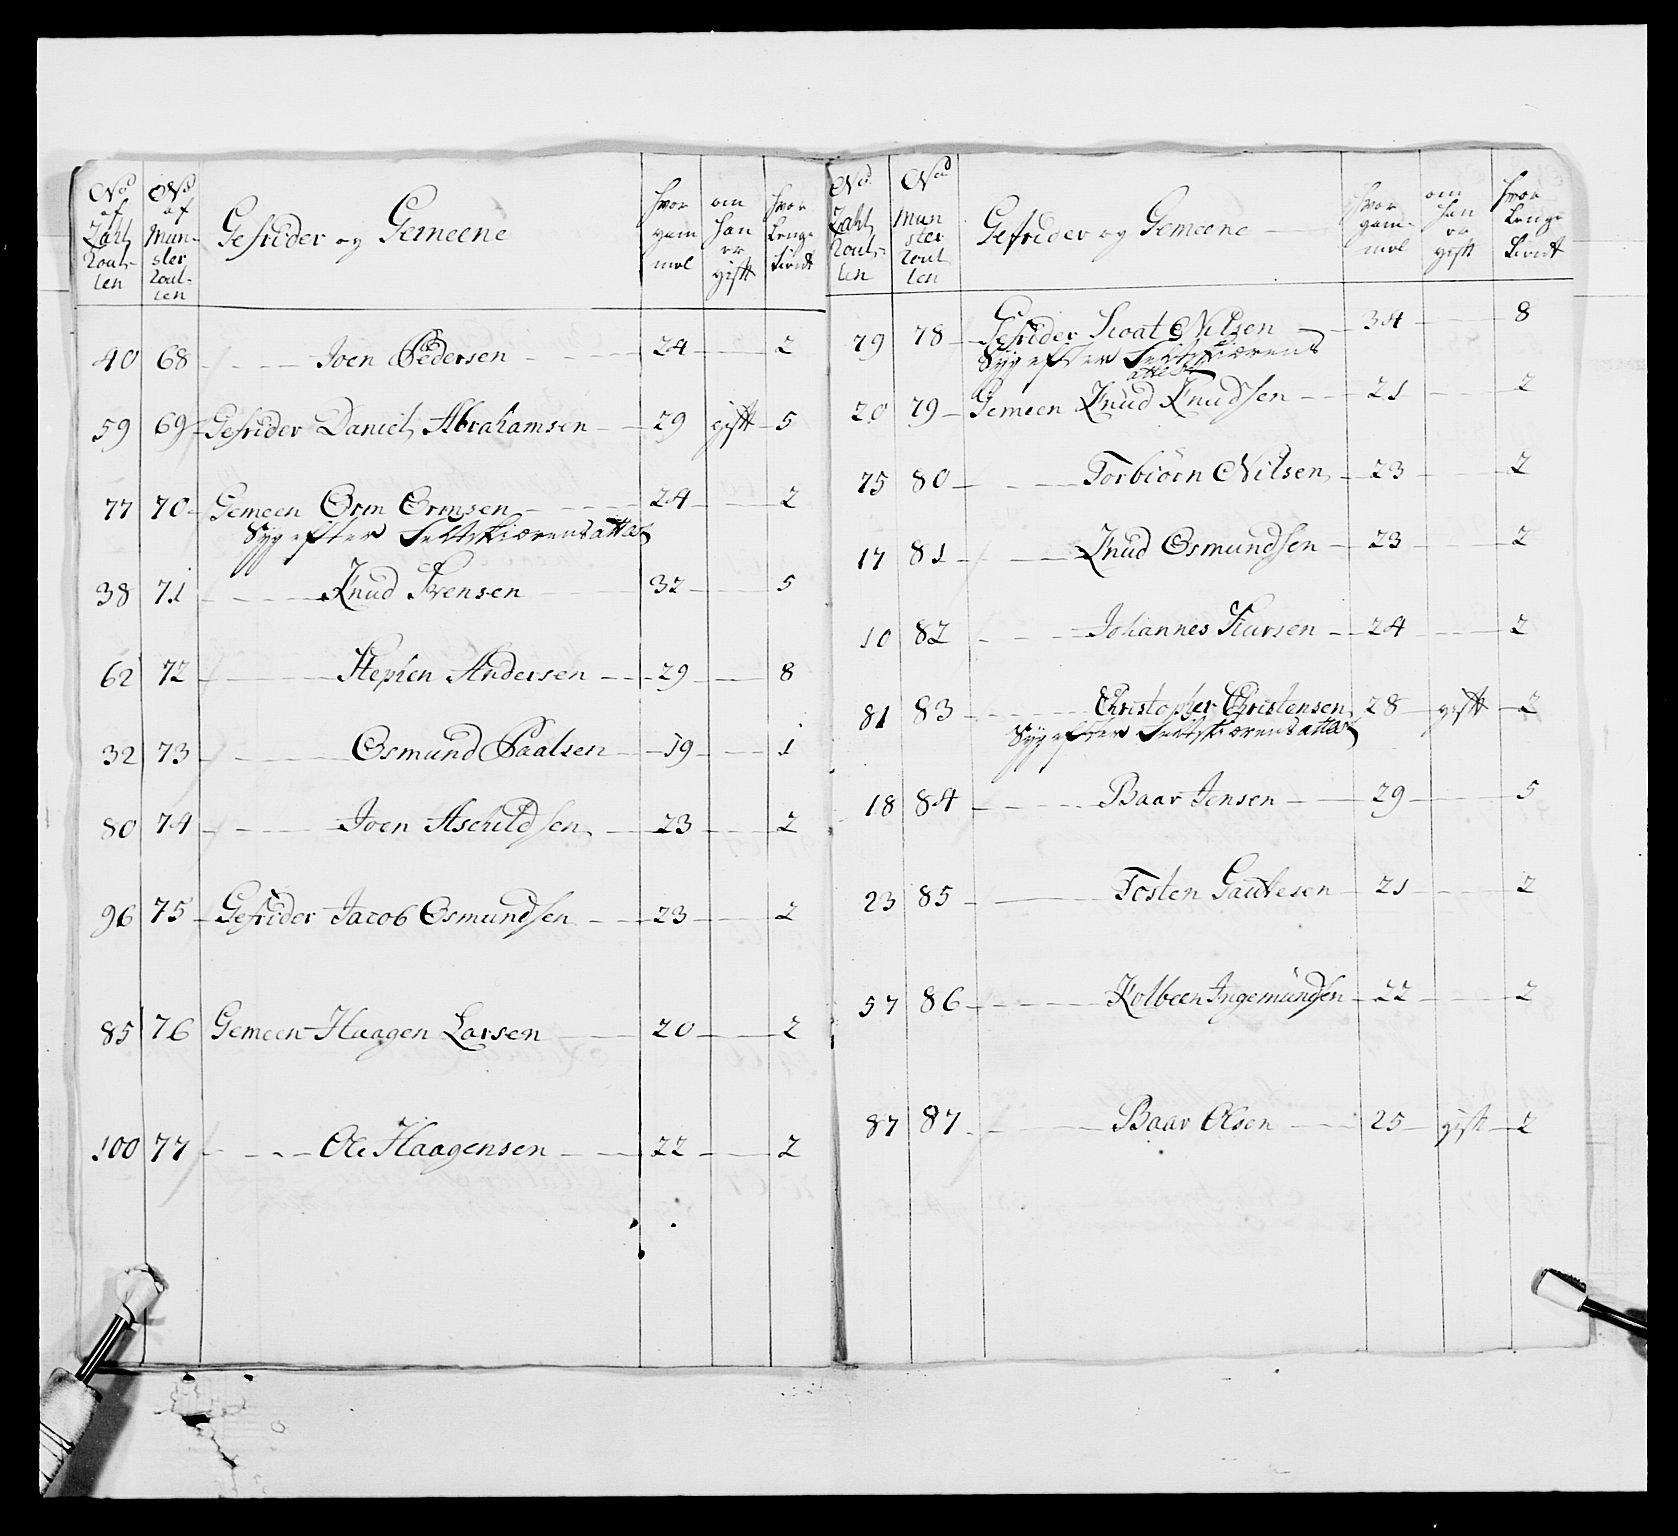 No af Zahl Roullen
No af Mun-ster Roul-len
Gefrider og Gemeene
hvor gam mel
om han er gift
hvor lenge tient
40 68 Joen Pedersen 24 2
59 69 Gefrider Daniel Abrahamsen 29 gift 5
77 70 Gemeen Orm Ormsen 24 2
Syg efter Feltskiærens attest
38 71 Knud Svensen 32 5
62 72 Stephen Andersen 29 8
32 73 Osmund Paalsen 19 1
80 74 Joen Aschildsen 23 2
96 75 Gefrider Jacob Osmundsen 23 2
85 76 Gemeen Haagen Larsen 20 2
100 77 Ole Haagensen 22 2
No Zahl Roul-len
No Mun ster Roul len
Gefrider og Gemeene
hvor gam-mel
om han er gift
hvor lenge tient
79 78 Gefrider Scoat Nilsen 34 8
Syg efter Feltskiærens
attest
20 79 Gemeen Knud Knudsen 21 2
75 80 Torbiörn Nilsen 23 2
17 81 Knud Osmundsen 23 2
10 82 Johannes Siursen 24 2
81 83 Christopher Christensen 28 gift 2
Syg efter Feltskiærens attest
18 84 Baar Jensen 29 5
23 85 Tosten Gautesen 21 2
57 86 Kolbeen Ingemundsen 22 2
87 87 Baar Olsen 25 gift 2